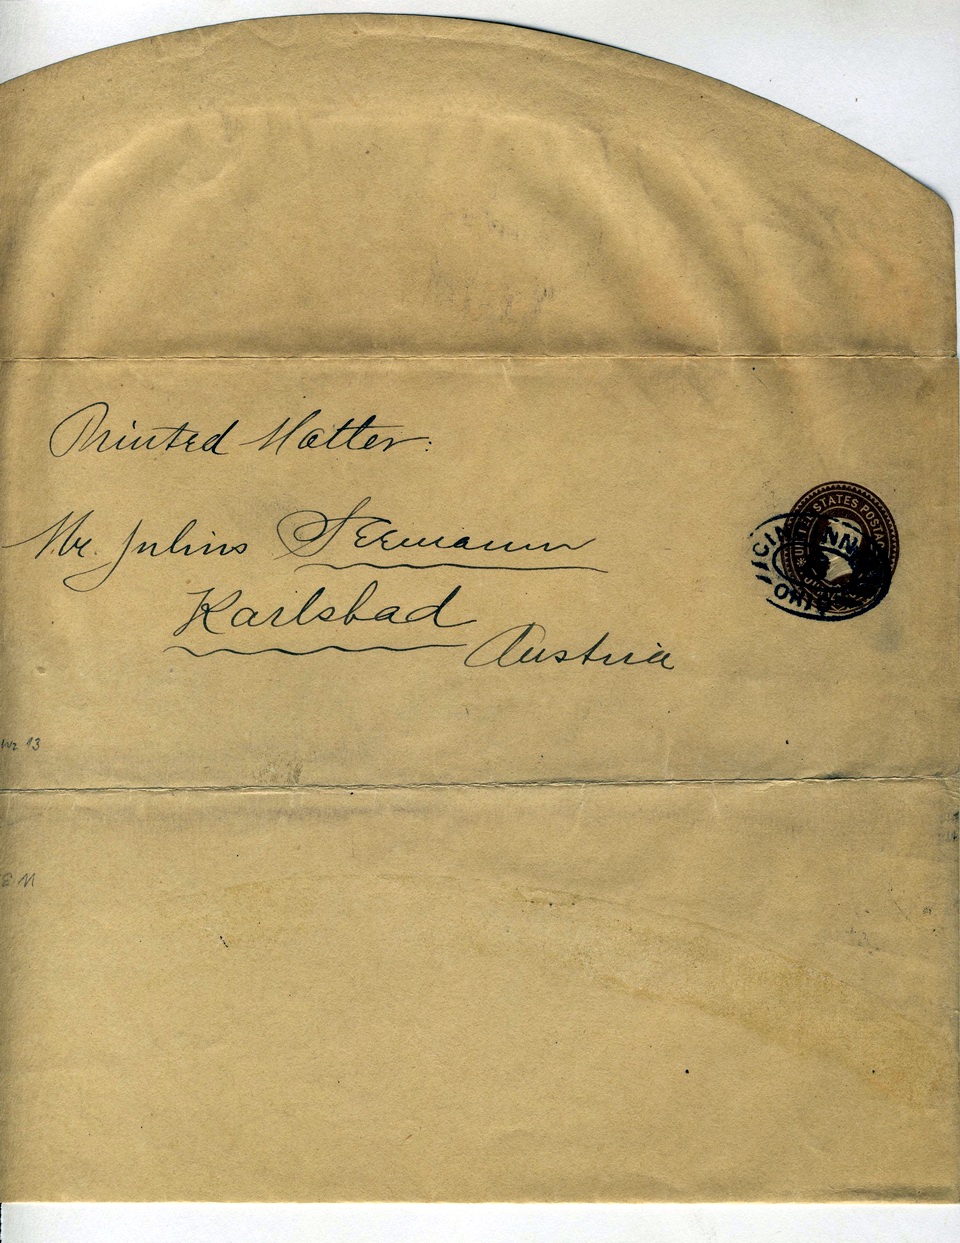 Printed Matter:
Mr. Julius Seemann
Karlsbad
Austria
UNITED STATES POSTAGE
CINCINNATI
OHIO